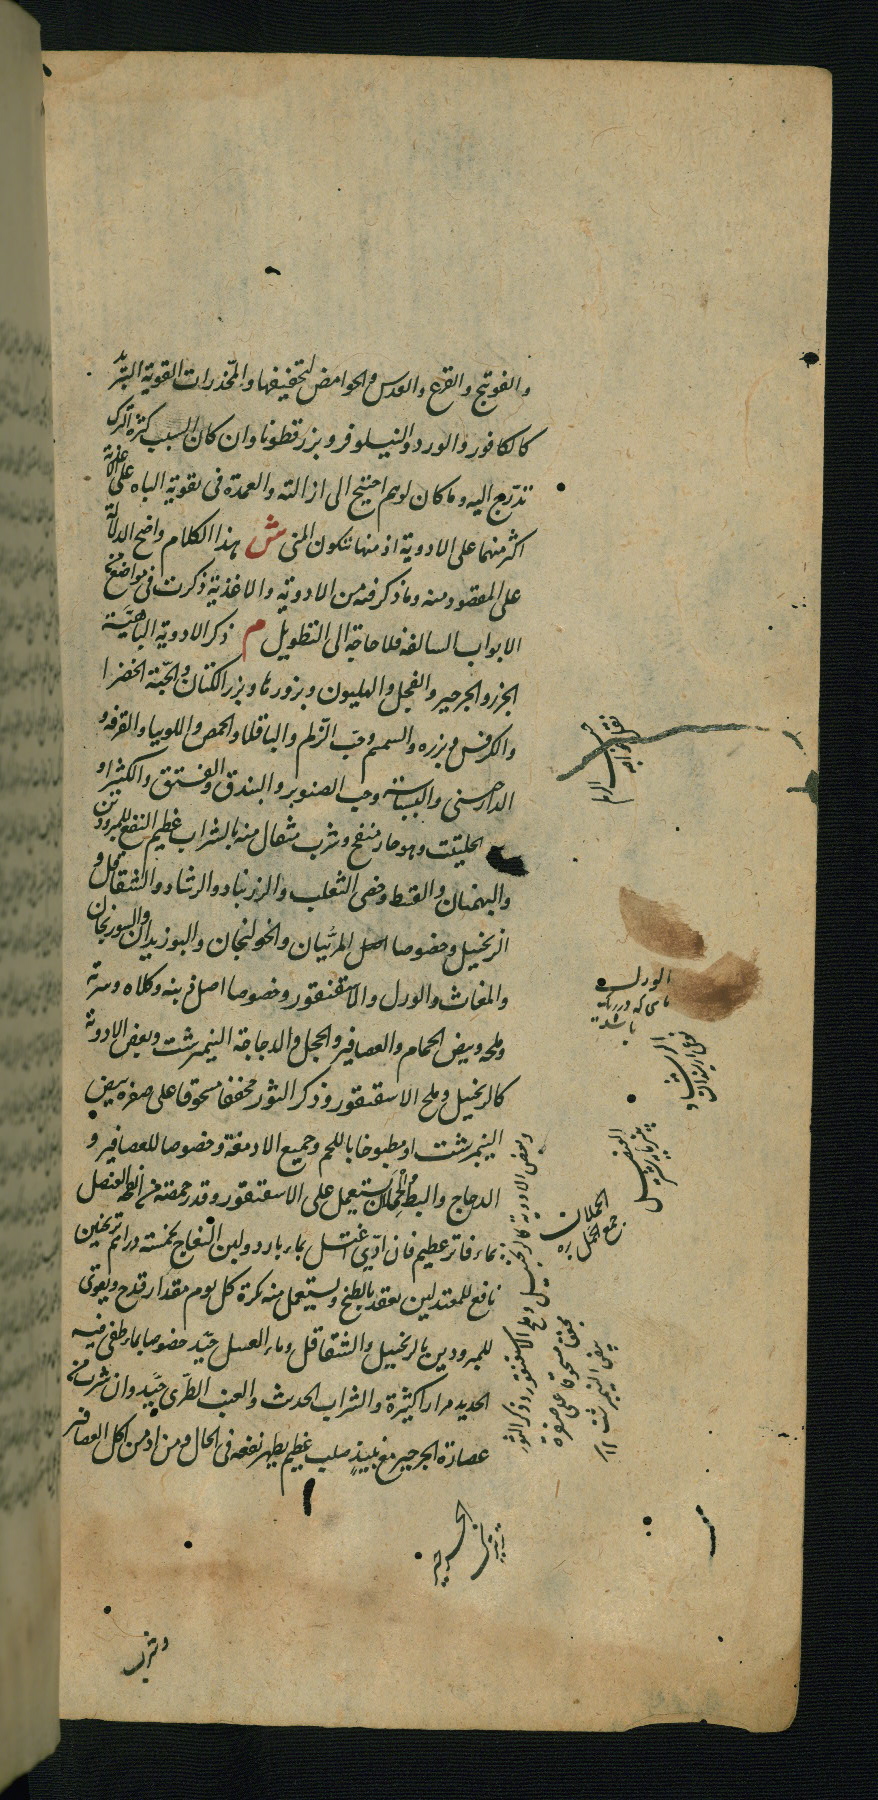 والفوتنج والقرع والعدس والحوامض لتجفيفها والمخدرات القوية التبريد
كالكافور والورد والنيلوفر وبزر قطونا وان كان السبب كثرة الترك
تدرج اليه وما كان لوهم احتيج الى ازالته والعمدة فى تقوية الباه على الاغذية
اكثر منهما على الادوية اذ منها تتكون المنى ش هذا الكلام واضح الدلالة
على المقصود منه وما ذكر فيه من الادوية والاغذية ذكرت فى مواضع من
الابواب السالفة فلا حاجة الى التطويل م ذكر الادوية الباهية
الجزر والجرجير والفجل والهليون وبزورها وبزر الكتان والحبة الخضرا
والكرفس وبزره والسمسم وحب الزلم والباقلا والحمص واللوبيا والقرفه و
الدارصينى والبسباسة وحب الصنوبر والبندق والفستق والكثيرا و
الحلتيت وهو حار منفخ وشرب مثقال منه بالشراب عظيم النفع للمبرودين
والبهمنان والقسط وخصى الثعلب والزرنباد والرشاد والشقاقل و
الزنجبيل وخصوصا المربيان والخولنجان والبوزيدان والسورنجان
والمغاث والورل والاسقنقور وخصوصا اصل ذنبه وكلاه وسرته
وملحه وبيض الحمام والعصافير والحجل والدجاجة النيمبرشت وبعض الادوية
كالزنجبيل وملح الاسقنقور وذكر الثور مجففا مسحوقا على صفره بيض
النيمبرشت او مطبوخا باللحم وجميع الادمغة وخصوصا للعصافير و
الدجاج والبط والحملان يستعمل على الاسقنقور وقدر حمصة من انفحة الفصيل
بماء فاتر عظيم فان اذى اغتسل بماء بارد ولبن النعاج بخمسة دراهم ترنجبين
نافع للمعتدلين يعقد بالطبخ ويستعمل منه بكرة كل يوم مقدار قدح ويقوى
للمبرودين بالزنجبيل والشقاقل وماء العسل جيد خصوصا بماء طفى فيه
الحديد مرارا كثيرة والشراب الحدث والعنب الطرى جيد وان شرب من
عصارة الجرجير مع نبيذ صلب عظيم يظهر نفعه فى الحال ومن ادمن اكل العصافير
الورل
ماهى كه در ريگ
باشد
الرشاد
الفصيل
الحملان
جمع الحمل بره
وبعض الادوية كالزنجبيل وملح الاسقنقور وذكر الثور
مجففا مسحوقا على صفرة
بيض النيمبرشت ١٢
وشرب